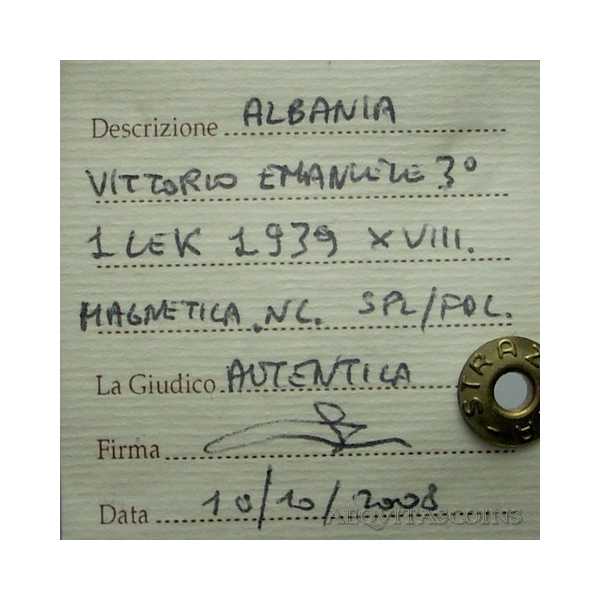 Descrizione ALBANIA
VITTORIO EMANUELE 3°
1 LEK 1939 XVIII.
MAGNETICA .NC. SPL/FDC.
La Giudico AUTENTICA
Firma
Data 10/10/2008
STRAN
AEQVITASCOINS